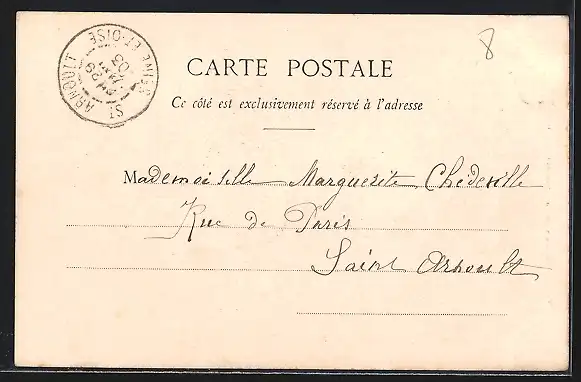 8
CARTE POSTALE
Ce côté est exclusivement réservé à l'adresse
Mademoiselle Marguerite Chedeville
Rue de Paris
Saint Arnoult
ST ARNOULT
SEINE-ET-OISE
29
03